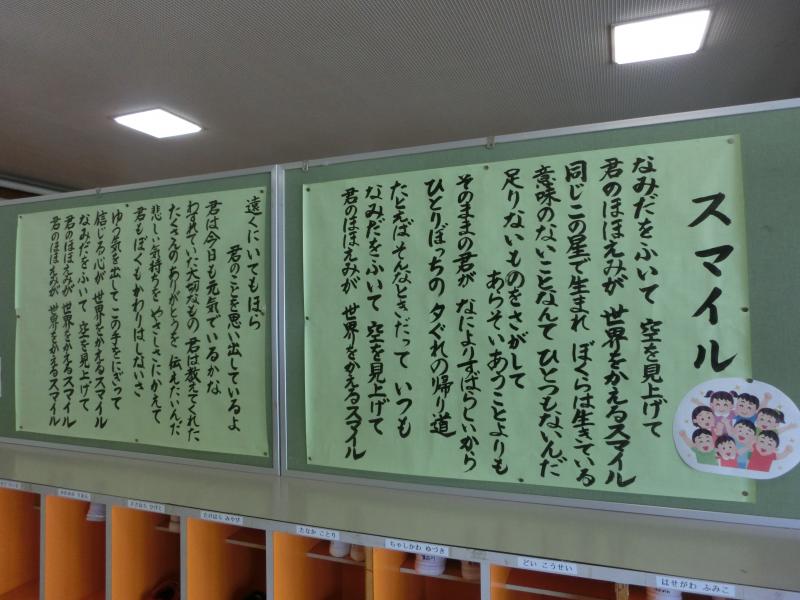 スマイル
なみだをふいて 空を見上げて
君のほほえみが 世界をかえるスマイル
同じこの星で生まれ ぼくらは生きている
意味のないことなんて ひとつもないんだ
足りないものをさがして
あらそいあうことよりも
そのままの君が なによりすばらしいから
ひとりぼっちの 夕ぐれの帰り道
たとえば そんなときだって いつも
なみだをふいて 空を見上げて
君のほほえみが 世界をかえるスマイル
遠くにいてもほら
君のことを思い出しているよ
君は今日も元気でいるかな
わすれていた大切なもの 君は教えてくれた
たくさんのありがとうを 伝えたいんだ
悲しい気持ちを やさしさにかえて
君もぼくもかわりはしないさ
ゆう気を出して この手をにぎって
信じる心が 世界をかえるスマイル
なみだをふいて 空を見上げて
君のほほえみが 世界をかえるスマイル
君のほほえみが 世界をかえるスマイル
たけはら みやび
たなか ことり
ちゃしかわ ゆづき
どい こうせい
はせがわ ふみこ